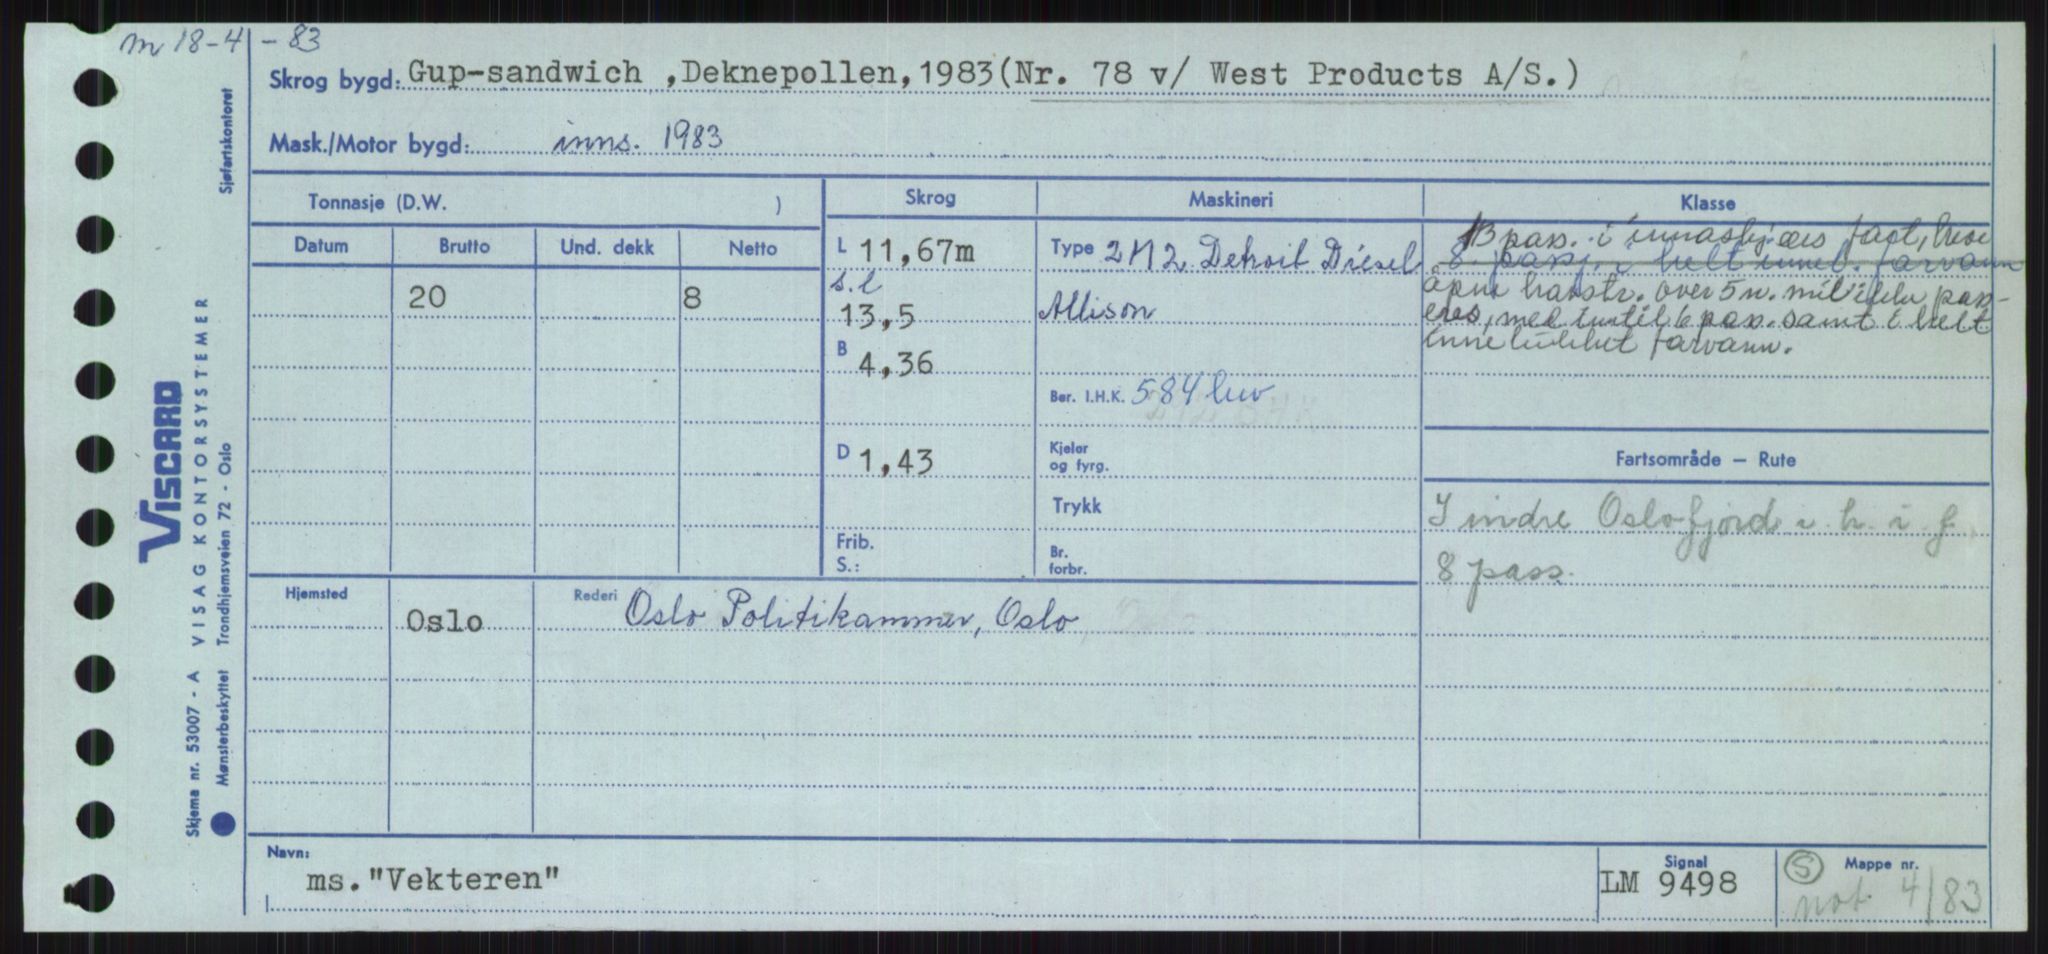 m 18-4-83
Skrog bygd: Gup-sandwich ,Deknepollen,1983(Nr. 78 v/ West Products A/S.)
Mask./Motor bygd: inns. 1983
Sjøfartskontoret
VISCARD
VISAG KONTORSYSTEMER
Skjema nr. 53007 - A
Trondhjemsveien 72 - Oslo
Mønsterbeskyttet
Tonnasje (D.W. )
Skrog
Maskineri
Klasse
Datum Brutto Und. dekk Netto
20 8
L 11,67m
s.l
13,5
B 4,36
D 1,43
Frib.
S.:
Type 2 M2 Detroit Diesel
Allison
Ber. I.H.K. 584 hw
Kjeler
og fyrg.
Trykk
Br.
forbr.
13 pass. i innaskjærs fart, hvor
8 passj. i helt innel. farvann
åpne havstr. over 5 n. mil ikke pas-
eres, med inntil 6 pass. samt i helt
innelukket farvann.
Fartsområde — Rute
I indre Oslofjord i h. i f.
8 pass.
Hjemsted Oslo
Rederi Oslo Politikammer, Oslo
Navn:
ms."Vekteren"
Signal
LM 9498
S Mappe nr.
not. 4/83